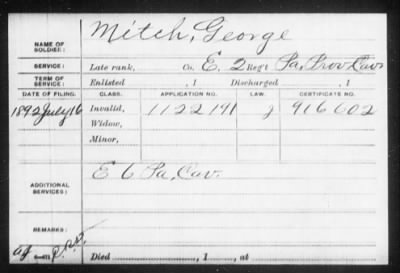 Mitch, George
NAME OF SOLDIER:
SERVICE: Late rank, Co. E. 2 Reg't Pa. Prov. Cav
TERM OF SERVICE: Enlisted , 1 Discharged , 1
DATE OF FILING. CLASS. APPLICATION NO. LAW. CERTIFICATE NO.
1892 July 16 Invalid, 1122191 J 916002
Widow,
Minor,
ADDITIONAL SERVICES: E 6 Pa. Cav.
REMARKS:
Died , 1 , at